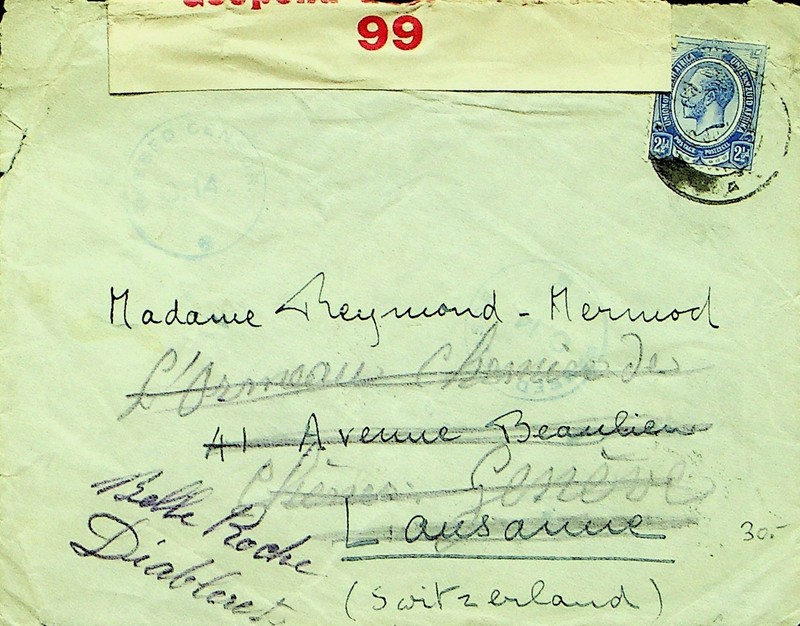 99
UNION OF SOUTH AFRICA UNIE VAN ZUID AFRIKA
POSTAGE POSTZEGEL
2½ 2½
PASSED CENSOR
Madame Reymond - Mermod
L'Ormeau Chemin de
41 Avenue Beaulieu
Chêne. Genève
Lausanne
(Switzerland)
Belle Roche
Diablerets
30.-